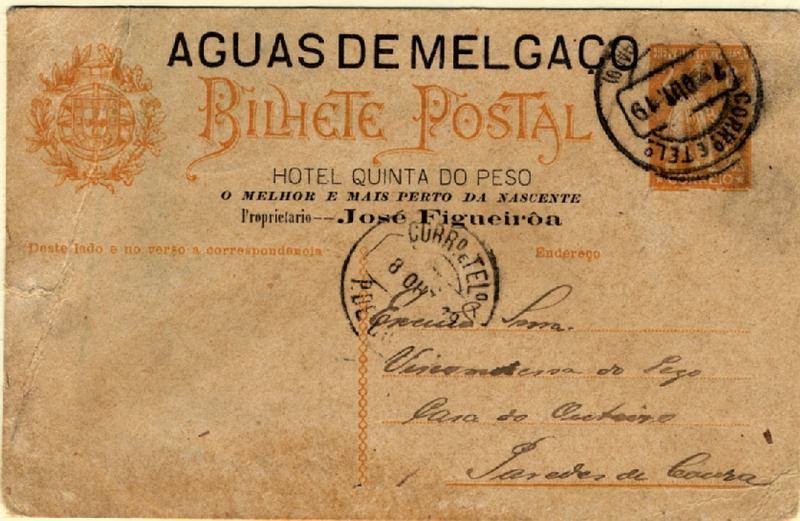 AGUAS DE MELGAÇO
BILHETE POSTAL
HOTEL QUINTA DO PESO
O MELHOR E MAIS PERTO DA NASCENTE
Proprietario--José Figueirôa
Deste lado e no verso a correspondencia
Endereço
CORRO E TELO
OUT. 19
CORRO E TELO
8 OUT
Exma Snra.
Viscondessa do Pezo
Casa do Outeiro
Paredes de Coura